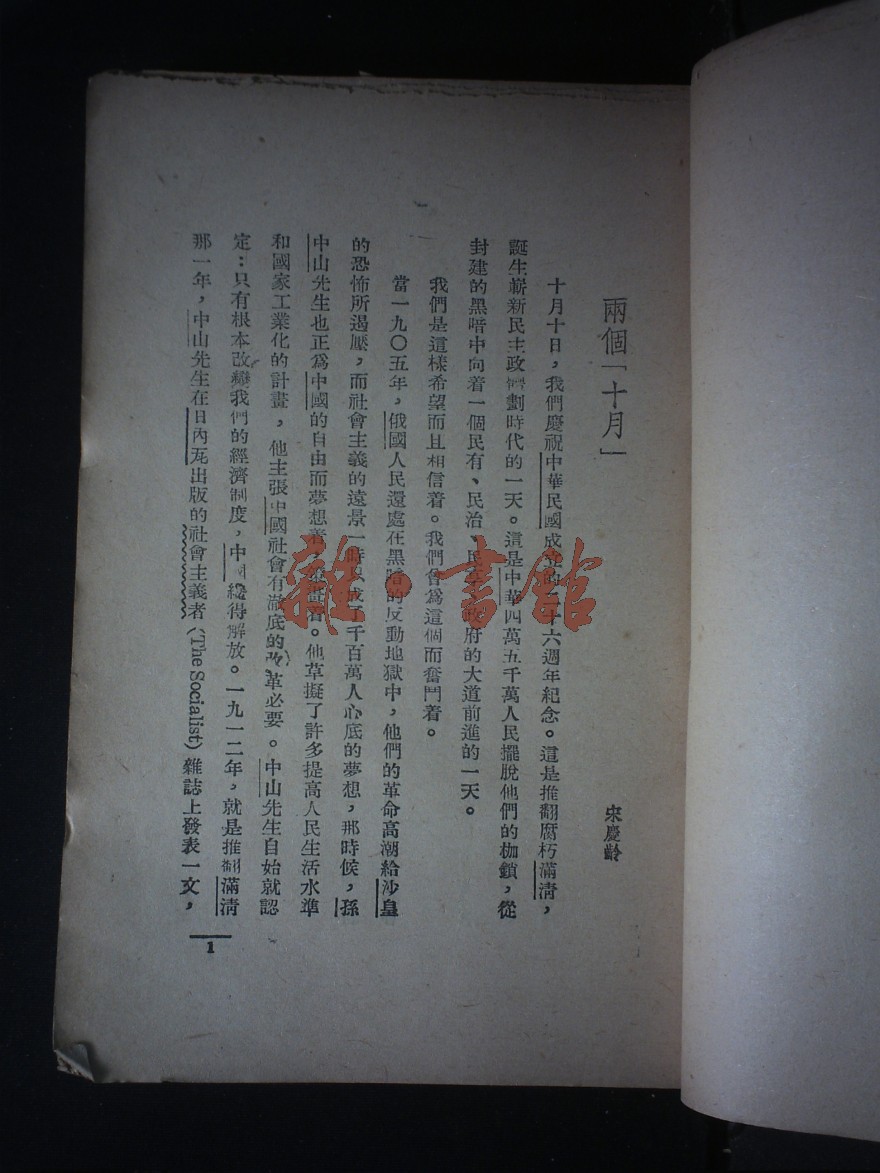 兩個「十月」
宋慶齡
十月十日，我們慶祝中華民國成立的二十六週年紀念。這是推翻腐朽滿清，
誕生嶄新民主政體劃時代的一天。這是中華四萬五千萬人民擺脫他們的枷鎖，從
封建的黑暗中向着一個民有、民治、民政府的大道前進的一天。
我們是這樣希望而且相信着。我們會爲這個而奮鬥着。
當一九〇五年，俄國人民還處在黑暗的反動地獄中，他們的革命高潮給沙皇
的恐怖所遏壓，而社會主義的遠景一時只成了千百萬人心底的夢想，那時候，孫
中山先生也正爲中國的自由而夢想着，着。他草擬了許多提高人民生活水準
和國家工業化的計畫，他主張中國社會有澈底的改革必要。中山先生自始就認
定：只有根本改變我們的經濟制度，中國纔得解放。一九一二年，就是推翻滿清
那一年，中山先生在日內瓦出版的社會主義者（The Socialist）雜誌上發表一文，
1
雜·書館